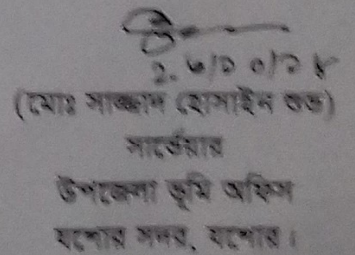 (মোঃ সাজ্জাদ হোসাইন শুভ)
সার্ভেয়ার
উপজেলা ভূমি অফিস
যশোর সদর, যশোর।